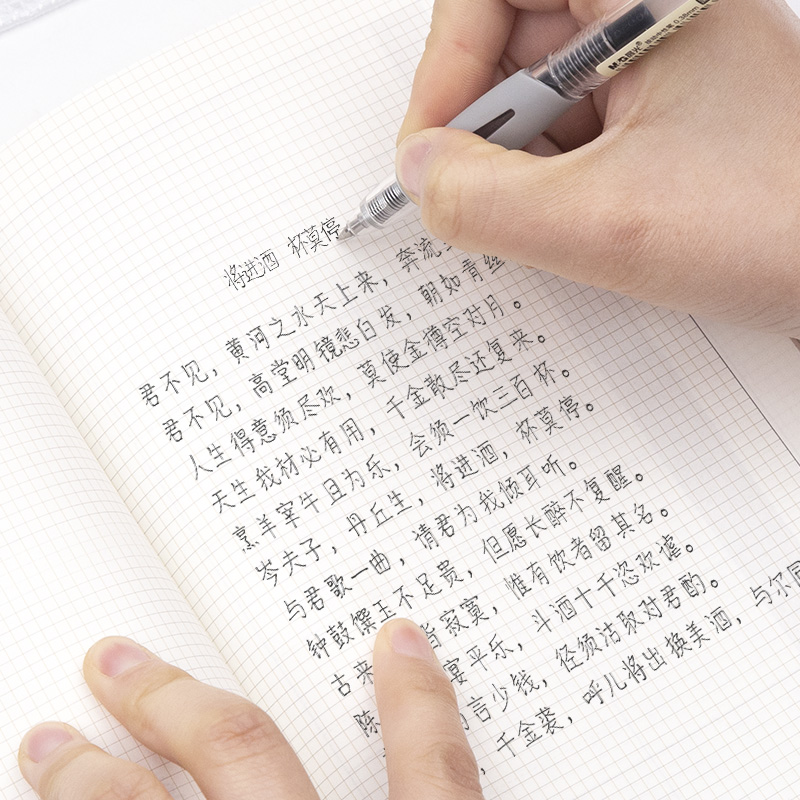 M&G晨光 0.38mm
将进酒 杯莫停
君不见，黄河之水天上来，奔流
君不见，高堂明镜悲白发，朝如青丝
人生得意须尽欢，莫使金樽空对月。
天生我材必有用，千金散尽还复来。
烹羊宰牛且为乐，会须一饮三百杯。
岑夫子，丹丘生，将进酒，杯莫停。
与君歌一曲，请君为我倾耳听。
钟鼓馔玉不足贵，但愿长醉不复醒。
古来皆寂寞，惟有饮者留其名。
陈宴平乐，斗酒十千恣欢谑。
言少钱，径须沽取对君酌。
，千金裘，呼儿将出换美酒，与尔同